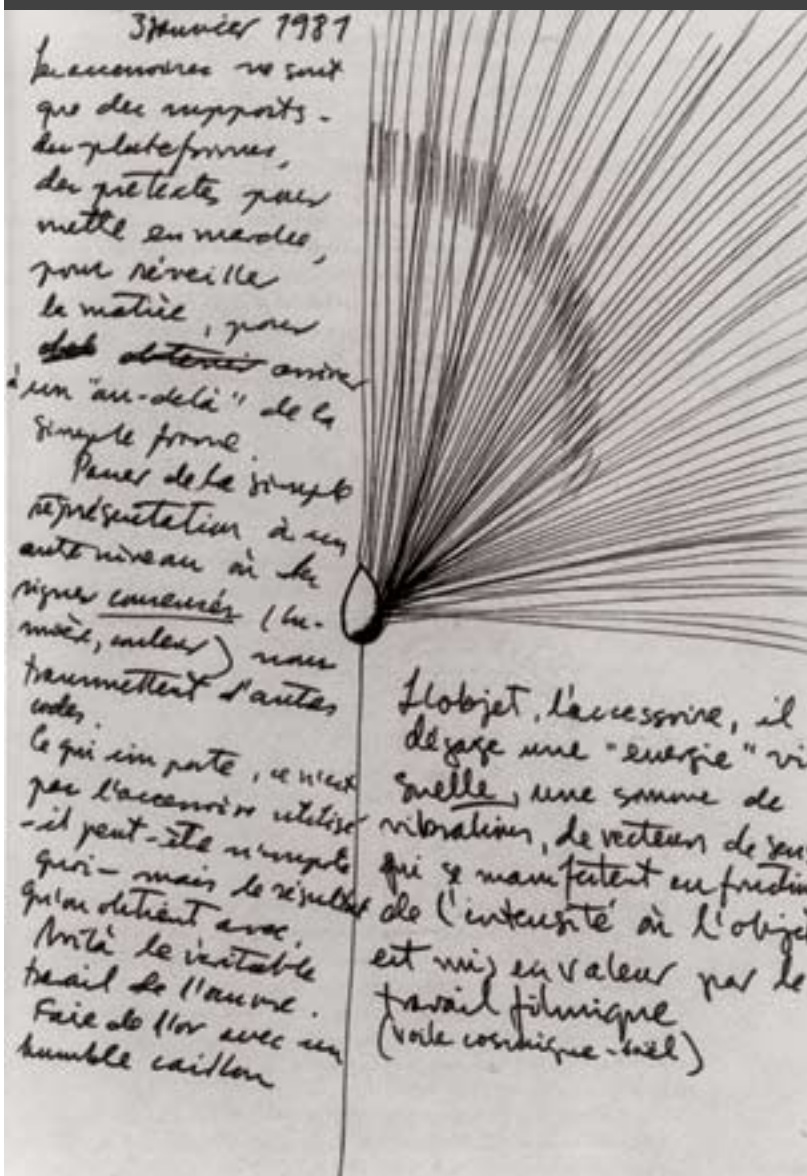 3 janvier 1981
les accessoires ne sont
que des supports -
des plateformes,
des prétextes pour
mettre en marche,
pour réveiller
la matière, pour
obtenir arriver
à un "au-delà" de la
simple forme.
Passer de la simple
représentation à un
autre niveau où les
signes (lu-
mière, couleur) nous
transmettent d'autres
codes.
Ce qui importe, ce n'est
pas l'accessoire utilisé
- il peut-être n'importe
quoi - mais le résultat
qu'on obtient avec.
Voilà le véritable
travail de l'œuvre.
Faire de l'or avec un
humble caillou
L'objet, l'accessoire, il
dégage une "énergie" vi
suelle, une somme de
vibrations, de vecteurs de
qui se manifestent en
de l'intensité où l'
est mis en valeur par le
travail filmique
(voile cosmique - )